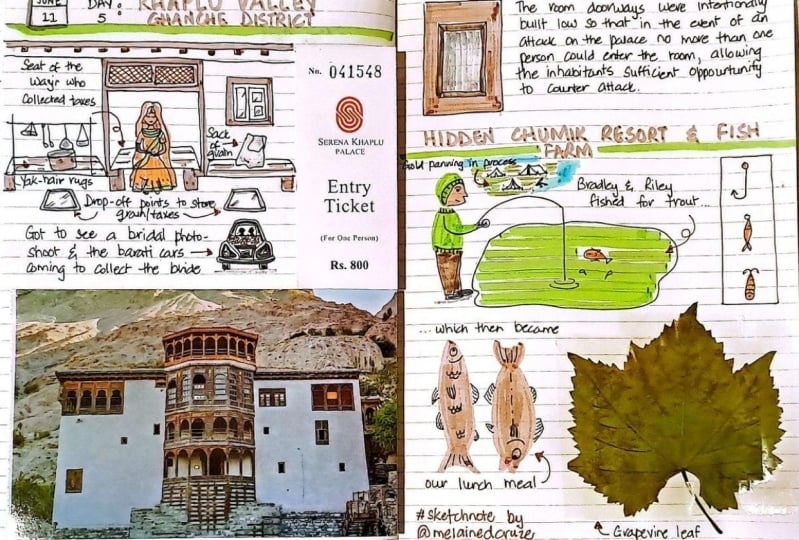 JUNE
11
DAY:
5
KHAPLU VALLEY
GHANCHE DISTRICT
Seat of the
Wazir who
collected taxes
Sack
of
grain
Yak-hair rugs
Drop-off points to store
grain/taxes
Got to see a bridal photo-
shoot & the barati cars
coming to collect the bride
No. 041548
SERENA KHAPLU
PALACE
Entry
Ticket
(For One Person)
Rs. 800
The room doorways were intentionally
built low so that in the event of an
attack on the palace no more than one
person could enter the room, allowing
the inhabitants sufficient oppourtunity
to counter attack.
HIDDEN CHUMIK RESORT & FISH
FARM
Gold panning in process
Bradley & Riley
fished for trout...
...which then became
our lunch meal
#sketchnote by
@melainedcruze
Grapevine leaf